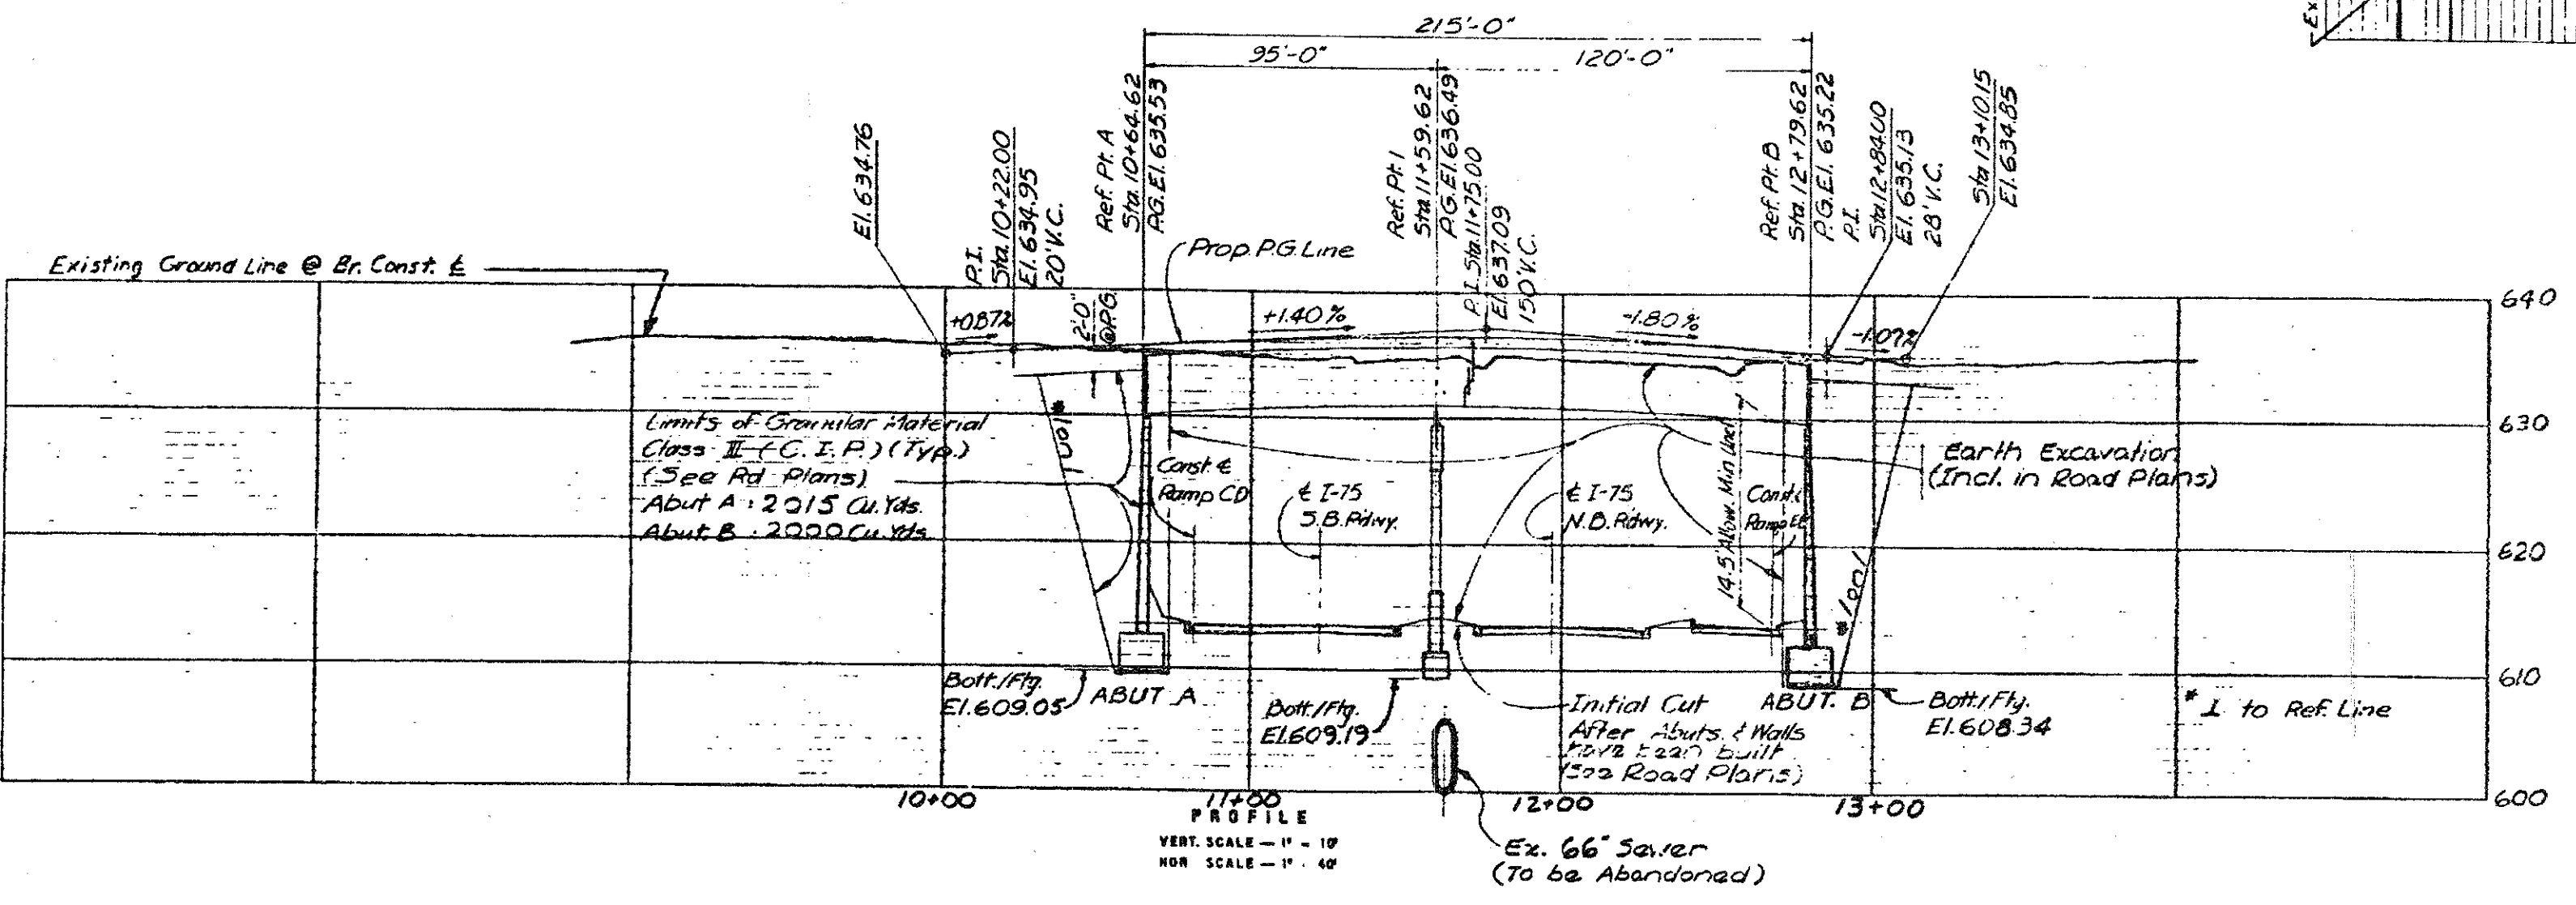 Ex
215'-0"
95'-0"
120'-0"
El. 634.76
P.I.
Sta. 10+22.00
El. 634.95
20' V.C.
Ref. Pt. A
Sta. 10+64.62
P.G. El. 635.53
Ref. Pt. 1
Sta. 11+59.62
P.G. El. 636.49
P.I. Sta. 11+75.00
El. 637.09
150' V.C.
Ref. Pt. B
Sta. 12+79.62
P.G. El. 635.22
P.I.
Sta. 12+84.00
El. 635.13
28' V.C.
Sta 13+10.15
El. 634.85
Existing Ground Line @ Br. Const. ℄
Prop. P.G. Line
+0.87%
2'-0"
@ P.G.
+1.40%
-1.80%
-1.07%
640
630
620
610
600
Limits of Granular Material
Class III (C.I.P.) (Typ.)
(See Rd Plans)
Abut A : 2015 Cu. Yds.
Abut. B : 2000 Cu. Yds
1 on 1 *
Const. ℄
Ramp CD
℄ I-75
S.B. Rdwy.
℄ I-75
N.B. Rdwy.
14.5' Allow. Min
Const. ℄
Ramp
Earth Excavation
(Incl. in Road Plans)
* 1 on 1
Bott./Ftg.
El. 609.05
ABUT A
Bott./Ftg.
El. 609.19
Initial Cut
After Abuts. & Walls
have been built
(See Road Plans)
ABUT. B
Bott./Ftg.
El. 608.34
* ⊥ to Ref. Line
10+00
11+00
12+00
13+00
PROFILE
VERT. SCALE — 1" = 10'
HOR SCALE — 1" = 40'
Ex. 66" Sewer
(To be Abandoned)